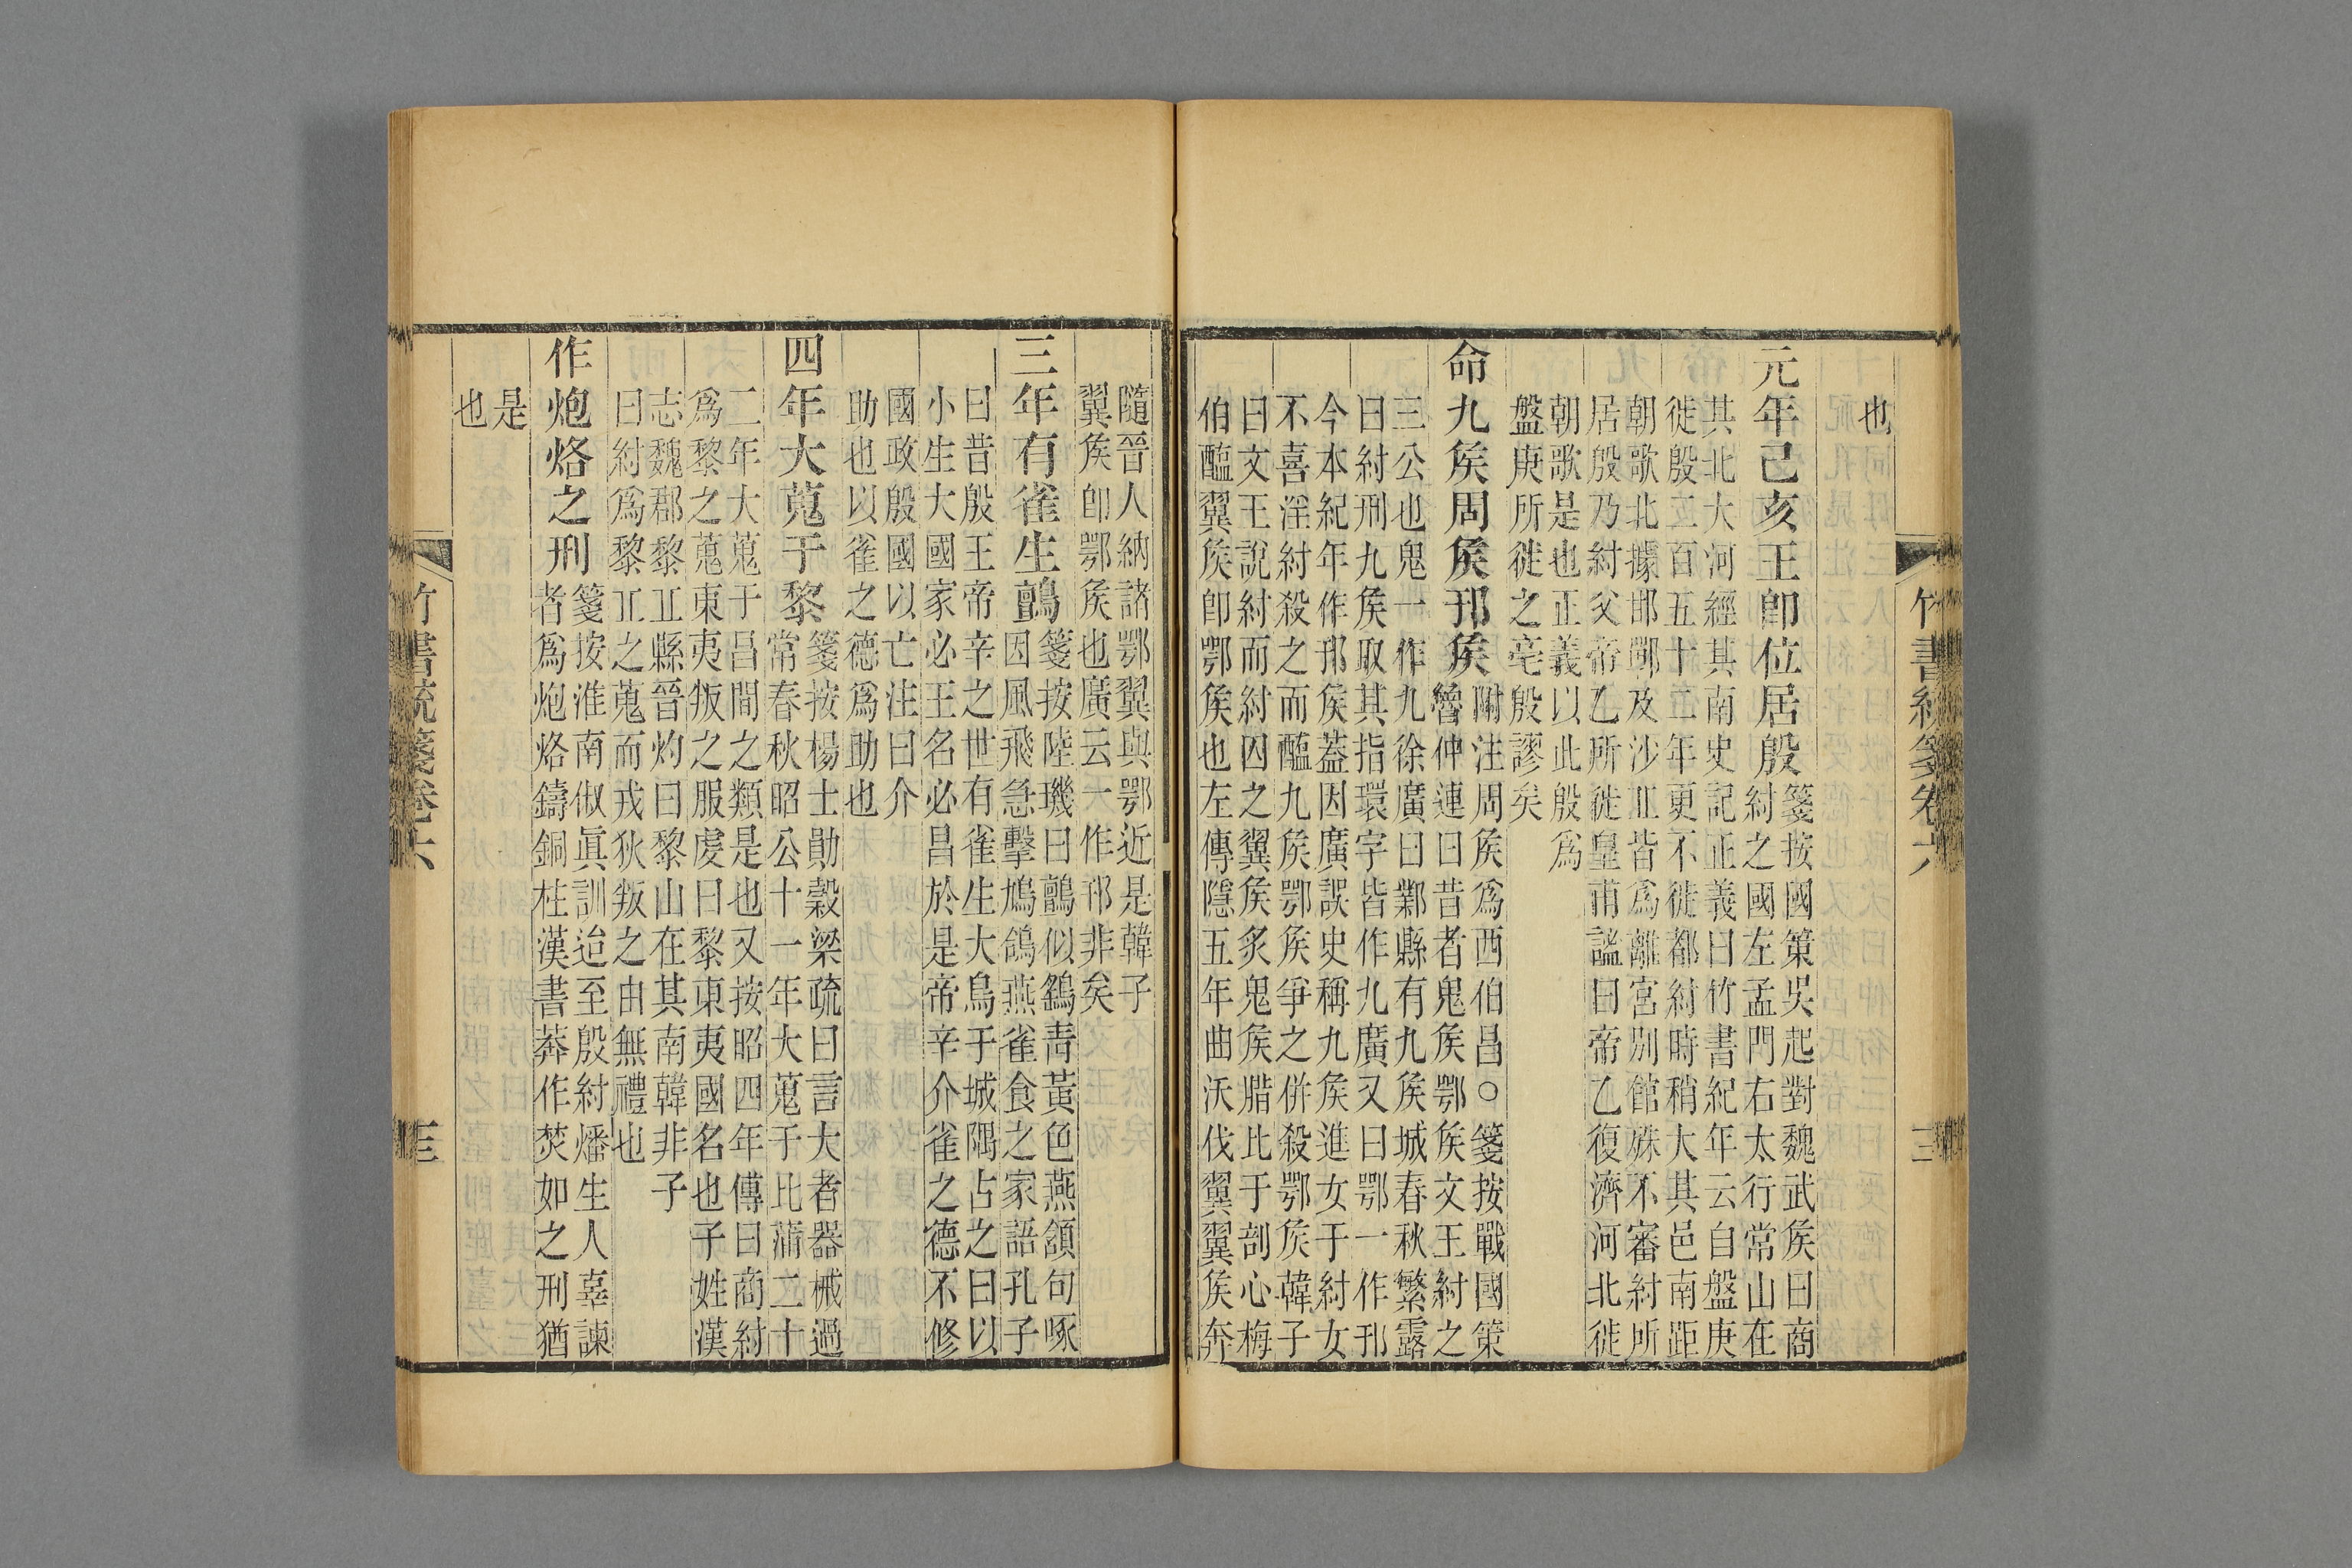 竹書統箋卷六
三
也
元年己亥王卽位居殷
箋按國策吳起對魏武侯曰商
紂之國左孟門右太行常山在
其北大河經其南史記正義曰竹書紀年云自盤庚
徙殷二百五十二年更不徙都紂時稍大其邑南距
朝歌北據邯鄲及沙丘皆爲離宮別館姝不審紂所
居殷乃紂父帝乙所徙皇甫謐曰帝乙復濟河北徙
朝歌是也正義以此殷爲
盤庚所徙之亳殷謬矣
命九侯周侯邘侯
附注周侯爲西伯昌○箋按戰國策
魯仲連曰昔者鬼侯鄂侯文王紂之
三公也鬼一作九徐廣曰鄴縣有九侯城春秋繁露
曰紂刑九侯取其指環字皆作九廣又曰鄂一作邘
今本紀年作邘侯葢因廣誤史稱九侯進女于紂女
不喜淫紂殺之而醢九侯鄂侯爭之併殺鄂侯韓子
曰文王說紂而紂囚之翼侯炙鬼侯腊比于剖心梅
伯醢翼侯卽鄂侯也左傳隱五年曲沃伐翼翼侯奔
隨晉人納諸鄂翼與鄂近是韓子
翼侯卽鄂侯也廣云一作邘非矣
三年有雀生鸇
箋按陸璣曰鸇似鷂靑黃色燕頷句啄
因風飛急擊鳩鴿燕雀食之家語孔子
曰昔殷王帝辛之世有雀生大鳥于城隅占之曰以
小生大國家必王名必昌於是帝辛介雀之德不修
國政殷國以亡注曰介
助也以雀之德爲助也
四年大蒐于黎
箋按楊士勛穀梁疏曰言大者器械過
常春秋昭公十一年大蒐于比蒲二十
二年大蒐于昌間之類是也又按昭四年傳曰商紂
爲黎之蒐東夷叛之服虔曰黎東夷國名也子姓漢
志魏郡黎丘縣晉灼曰黎山在其南韓非子
曰紂爲黎丘之蒐而戎狄叛之由無禮也
作炮烙之刑
箋按淮南俶眞訓迨至殷紂燔生人辜諫
者爲炮烙鑄銅柱漢書莽作焚如之刑猶
是
也
竹書統箋卷六
三